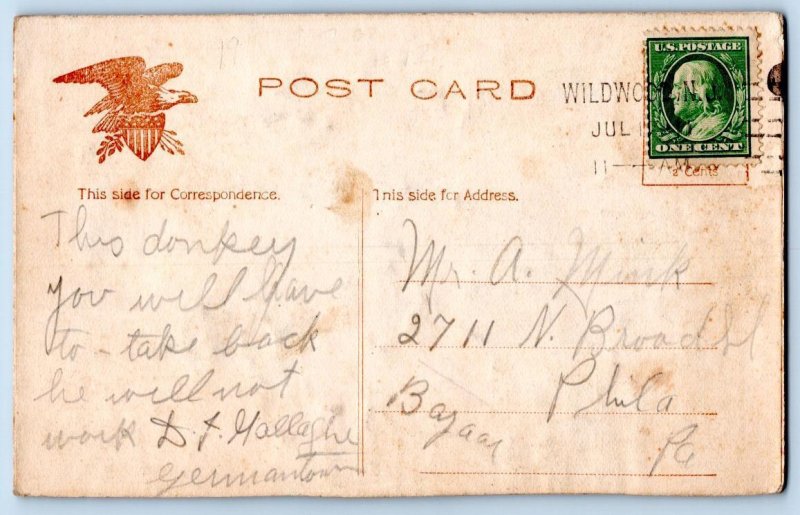 POST CARD
U.S. POSTAGE
ONE CENT
2 Cents
WILDWOOD, N.J.
JUL
11 — AM
This side for Correspondence.
This side for Address.
This donkey
you will have
to - take back
he will not
work D. J. Gallaghe
Germantown
Mr. A. Mink
2711 N. Broad St
Phila
Bazaar
Pa